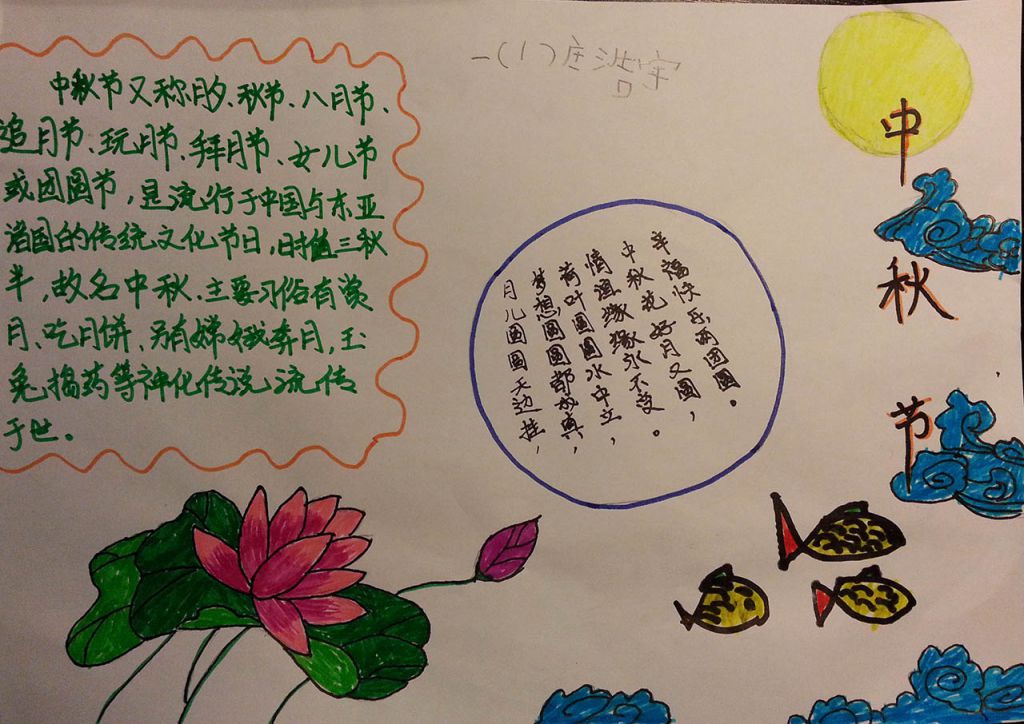 中秋节又称月夕、秋节、八月节、
追月节、玩月节、拜月节、女儿节
或团圆节，是流行于中国与东亚
诸国的传统文化节日，时值三秋
半，故名中秋。主要习俗有赏
月、吃月饼、另有嫦娥奔月，玉
兔捣药等神化传说流传
于世。
一(1)浩宇
月儿圆圆天边挂，
梦想圆圆都成真，
荷叶圆圆水中立，
情温缘缘永不变。
中秋花好月又圆，
幸福快乐两团圆。
中秋节